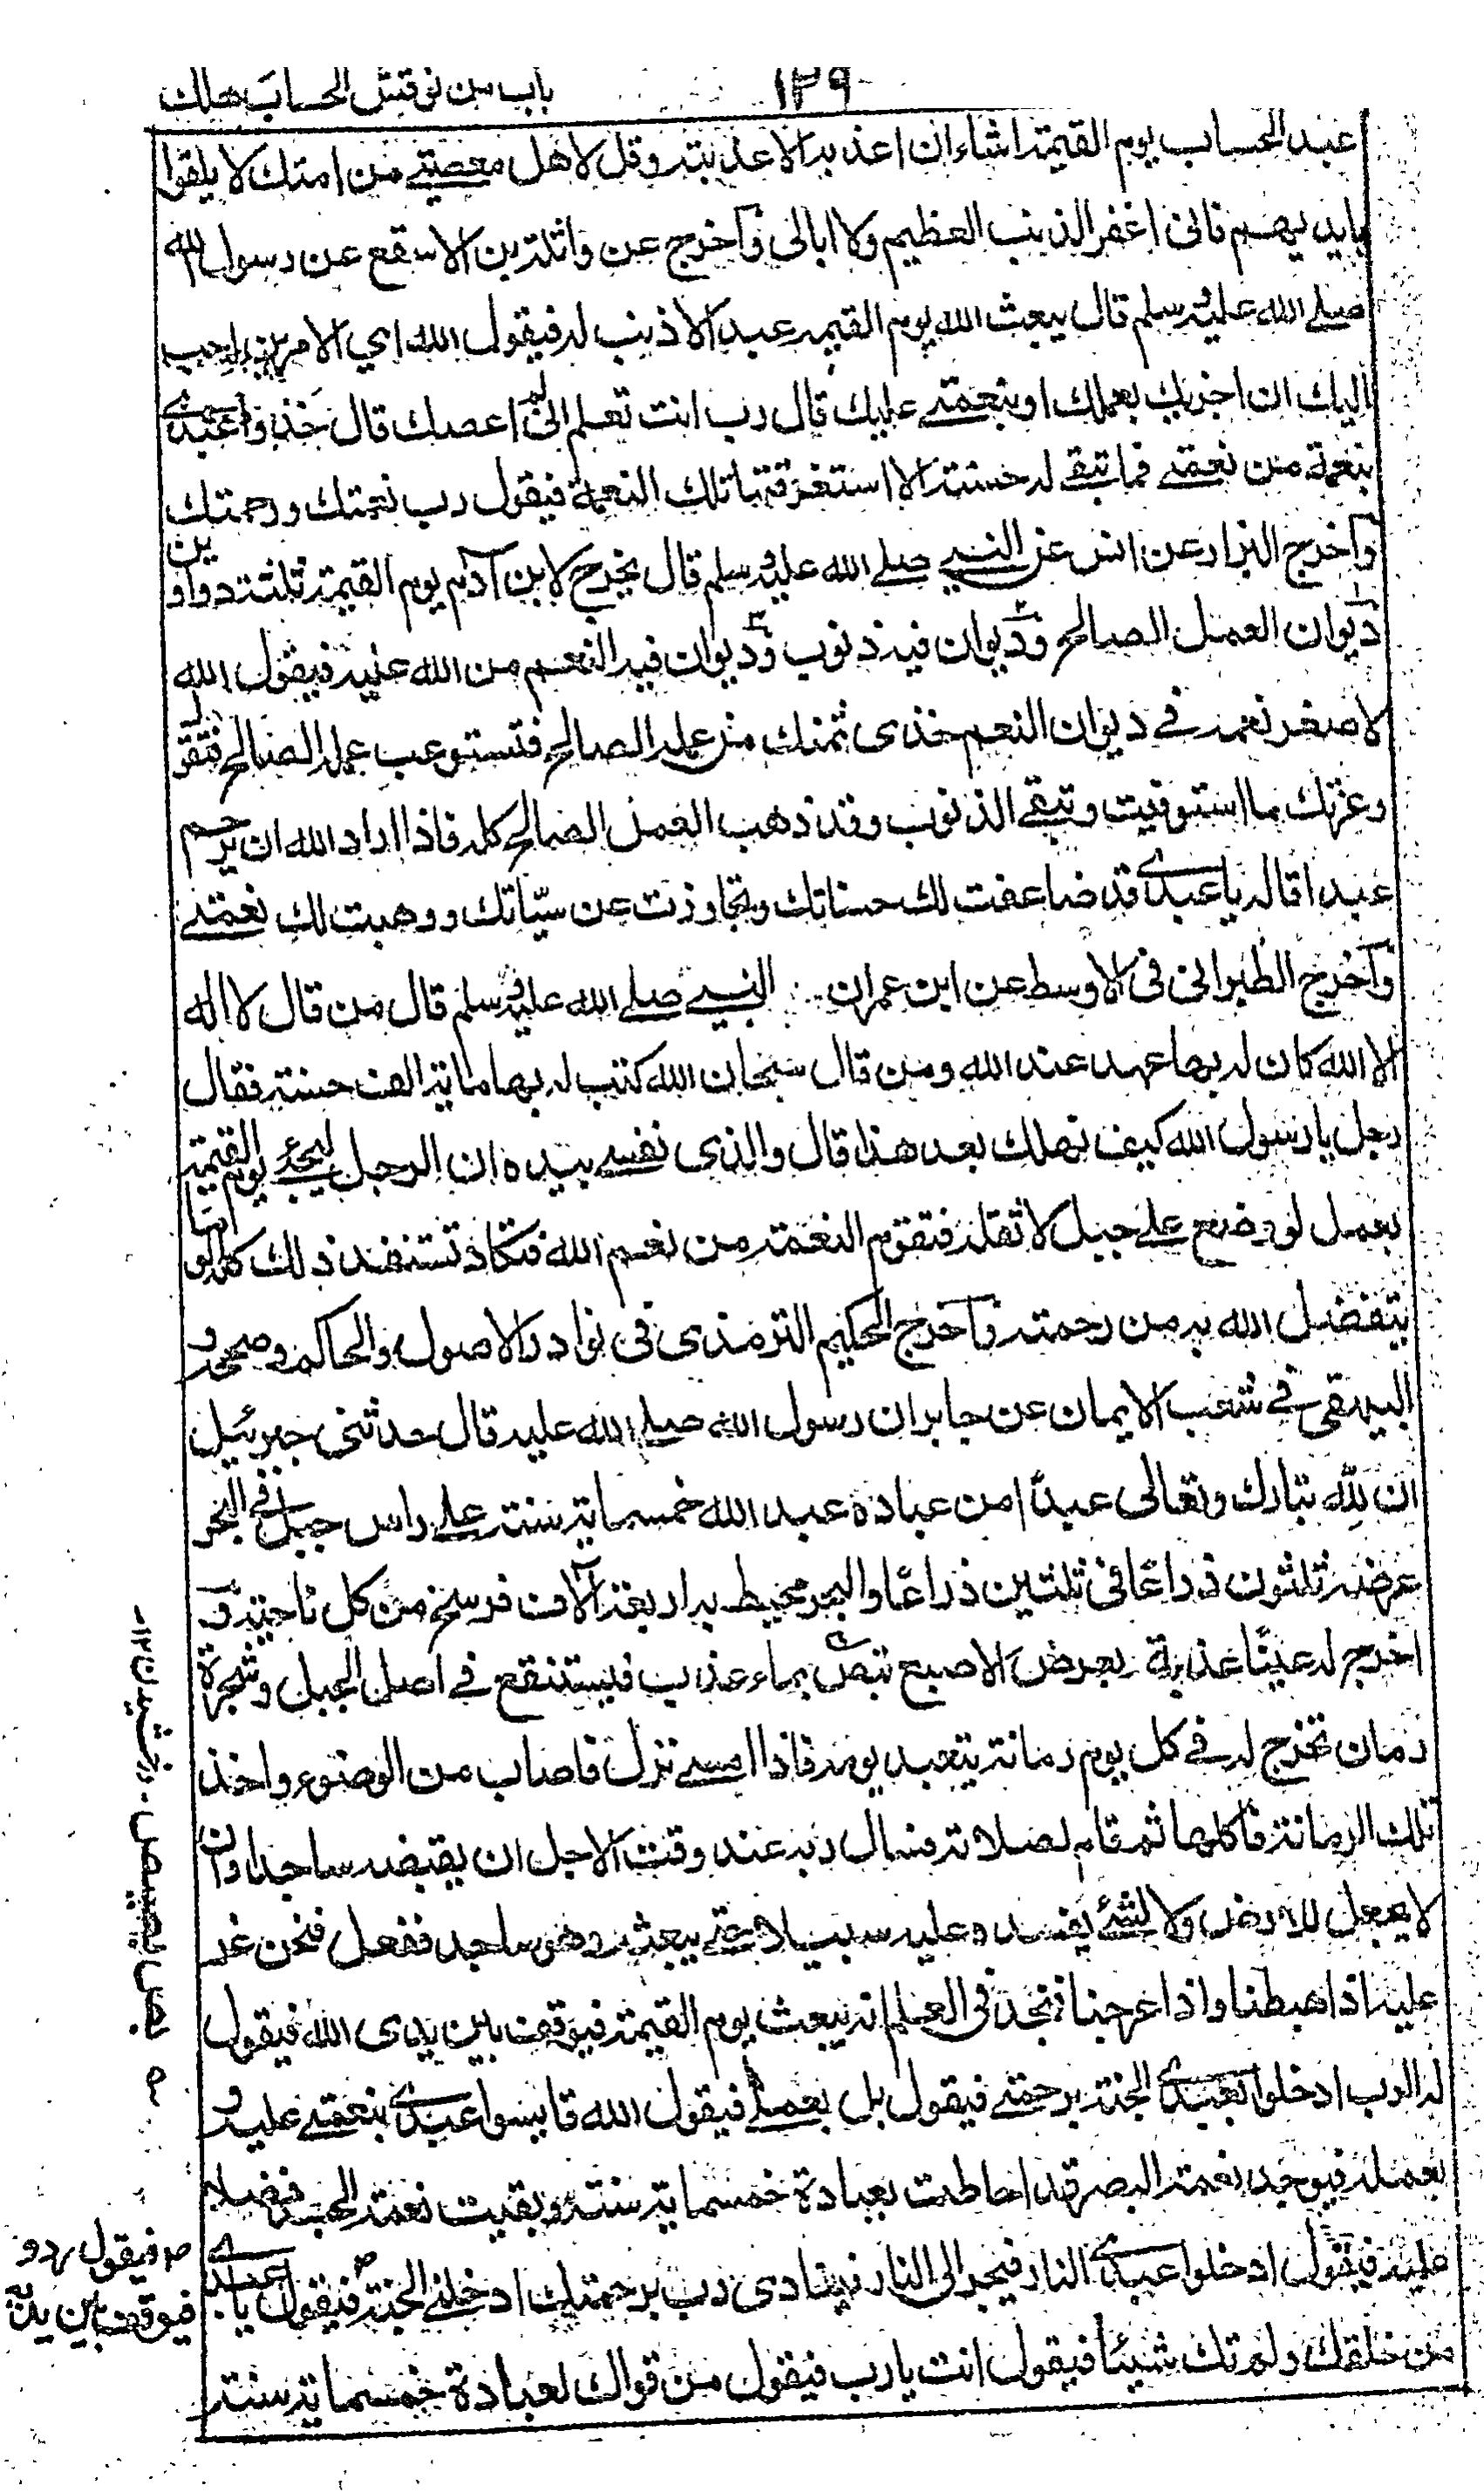 باب من نوقش الحساب هلك
١٢٩
عبد الحساب يوم القيمة اشاء ان اعذبه الا عذبته وقل لاهل معصيتے من امتك لا يلقوا
بايديهم فانى اغفر الذنب العظيم ولا ابالى وآخرج عن واثلة بن الاسقع عن رسول الله
صلے الله عليه وسلم قال يبعث الله يوم القيمة عبدا لا ذنب له فيقول الله اي الامرين احب
اليك ان اجزيك بعملك او بنعمتے عليك قال رب انت تعلم انى لم اعصك قال خذوا عبدے
بنعمة من نعمتے فما تبقے له حسنة الا استغرقتها تلك النعمة فيقول رب نعمتك ورحمتك
وآخرج البزار عن انس عن النبے صلے الله عليه وسلم قال يخرج لابن آدم يوم القيمة ثلثة دواوين
ديوان العمل الصالح وديوان فيه ذنوب وديوان فيه النعم من الله عليه فيقول الله
لاصغر نعمة فے ديوان النعم خذى ثمنك من عمله الصالح فتستوعب عمله الصالح فتقول
وعزتك ما استوفيت وتبقے الذنوب وقد ذهب العمل الصالح كله فاذا اراد الله ان يرحم
عبدا قال له يا عبدے قد ضاعفت لك حسناتك وتجاوزت عن سيّاتك ووهبت لك نعمتے
وآخرج الطبرانى فى الاوسط عن ابن عمر ان النبے صلے الله عليه وسلم قال من قال لا اله
الا الله كان له بها عهد عند الله ومن قال سبحان الله كتب له بها مائة الف حسنة فقال
رجل يا رسول الله كيف نهلك بعد هذا قال والذى نفسے بيده ان الرجل ليجئ يوم القيمة
بعمل لو وضع علے جبل لاثقله فتقوم النعمة من نعم الله فتكاد تستنفد ذلك كله لولا ما
يتفضل الله به من رحمته وآخرج الحكيم الترمذى فى نوادر الاصول والحاكم وصححه و
البيهقى فے شعب الايمان عن جابر ان رسول الله صلے الله عليه قال حدثنى جبرئيل
ان لله تبارك وتعالى عبدًا من عباده عبد الله خمسماية سنة علے راس جبل فے البحر
عرضه ثلثون ذراعًا فى ثلثين ذراعًا والبحر محيط به اربعة آلاف فرسخ من كل ناحية و
اخرج له عينًا عذبة بعرض الاصبع تبض بماء عذب فيستنقع فے اصل الجبل وشجرة
رمان تخرج له فے كل يوم رمانة يتعبد يومه فاذا امسے نزل فاصاب من الوضوء واخذ
تلك الرمانة فاكلها ثم قام لصلاته فسال ربه عند وقت الاجل ان يقبضه ساجدا وان
لا يجعل للارض ولا لشئ يفسده عليه سبيلا حتے يبعثه وهو ساجد ففعل فنحن نمر
عليه اذا هبطنا واذا عرجنا فنجد فى العلم انه يبعث يوم القيمة فيوقف بين يدى الله فيقول
له الرب ادخلوا عبدے الجنة برحمتے فيقول بل بعملے فيقول الله قايسوا عبدے بنعمتے عليه و
بعمله فيوجد نعمة البصر قد احاطت بعبادة خمسماية سنة وبقيت نعمة الجسد فضلا
عليه فيقول ادخلوا عبدے النار فيجر الى النار فينادى رب برحمتك ادخلنے الجنة فيقول يا عبدے
من خلقك ولم تك شيئا فيقول انت يا رب فيقول من قواك لعبادة خمسماية سنة
بض يبض درخشيدن ١٢
فيقول ردوه
فيوقف بين يديه